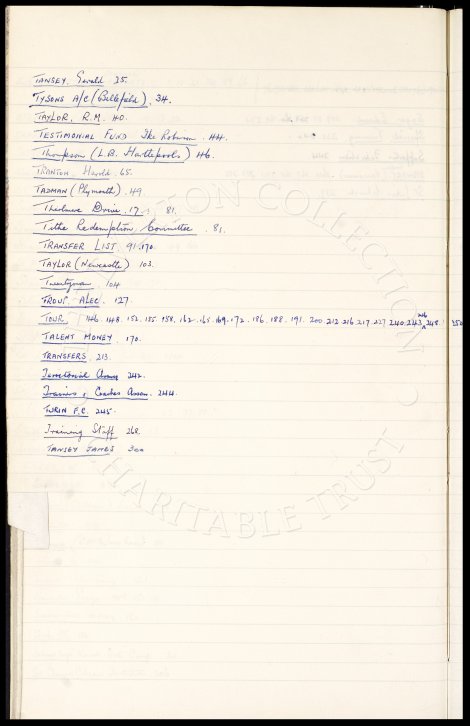 TANSEY, Gerald 25.
TYSONS A/C (Bellefield). 34.
TAYLOR, R.M. 40.
TESTIMONIAL FUND Ike Robinson. 44.
Thompson (L.B. Hartlepools) 46.
TRANTON, Harold. 65.
TADMAN (Plymouth). 49
Drive. 17 81.
Tithe Redemption Committee. 81.
TRANSFER LIST. 91. 170.
TAYLOR (Newcastle) 103.
Twentyman 104
TROUP, ALEC. 127.
TOUR. 146. 148. 152. 155. 158. 162. 165. 169. 172. 186. 188. 191. 200. 212. 216. 217. 227. 240. 243. 246 248. 250
TALENT MONEY. 170.
TRANSFERS. 213.
Territorial Army 242.
Trainers & Coaches Assn. 244.
TURIN F.C. 245.
Training Staff 268.
TANSEY JAMES 300
TON COLLECTION
CHARITABLE TRUST